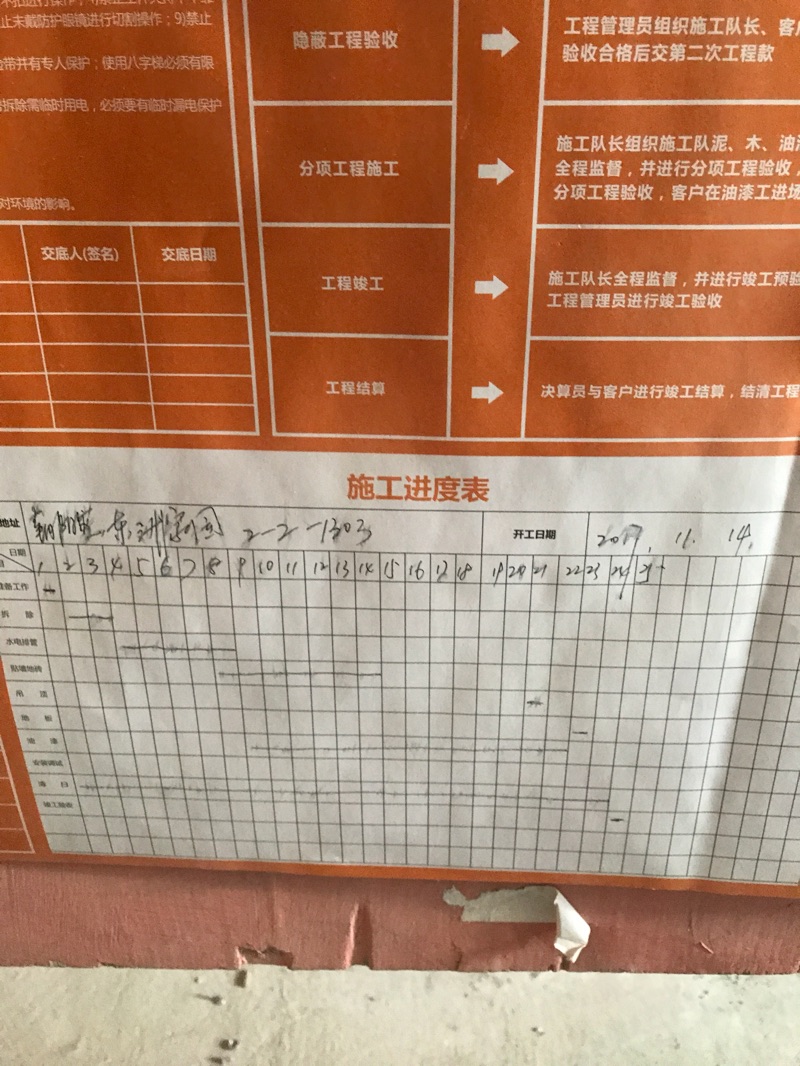 止未戴防护眼镜进行切割操作；9)禁止
带并有专人保护；使用八字梯必须有限
拆除需临时用电，必须要有临时漏电保护
对环境的影响。
交底人(签名) 交底日期
隐蔽工程验收
工程管理员组织施工队长、客
验收合格后交第二次工程款
分项工程施工
施工队长组织施工队泥、木、油
全程监督，并进行分项工程验收，
分项工程验收，客户在油漆工进场
工程竣工
施工队长全程监督，并进行竣工预验
工程管理员进行竣工验收
工程结算
决算员与客户进行竣工结算，结清工程
施工进度表
地址 2-2-1303 开工日期 2017. 11. 14.
日期
1 2 3 4 5 6 7 8 9 10 11 12 13 14 15 16 17 18 19 20 21 22 23 24 25
准备工作
拆 除
水电排管
贴墙地砖
吊 顶
地 板
油 漆
安装调试
清 日
竣工验收